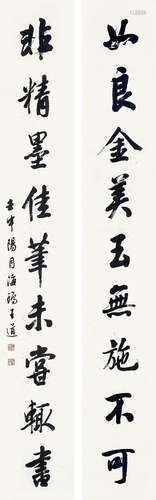 如良金美玉無施不可
非精墨佳筆未嘗輒書
壬申陽月海鷗王道